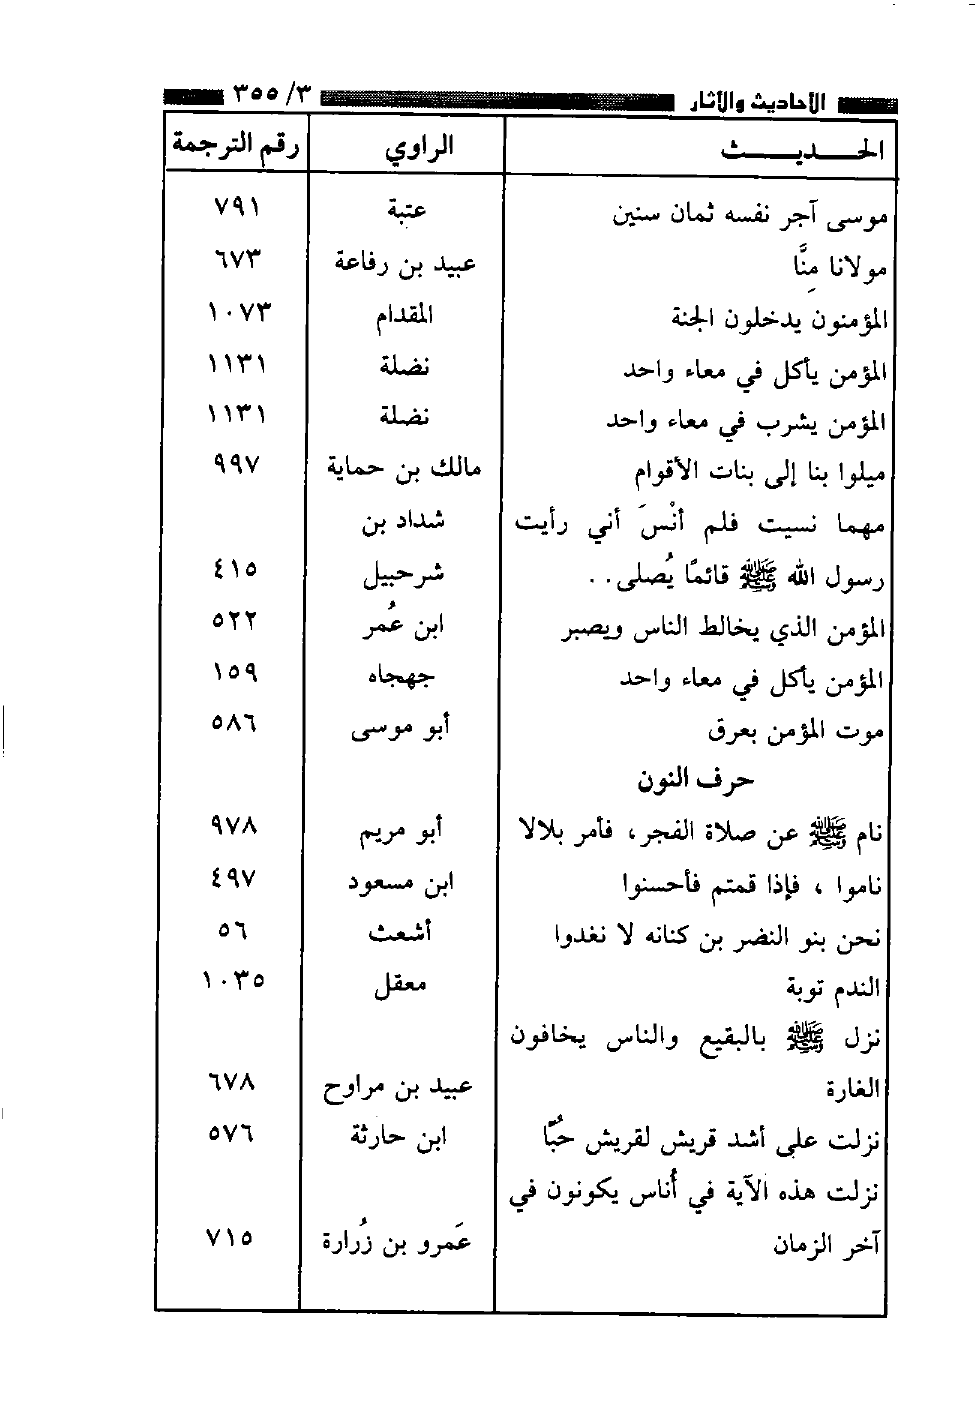 الأحاديث والآثار ٣/ ٣٥٥
الحـــديـــــث الراوي رقم الترجمة
موسى آجر نفسه ثمان سنين عتبة ٧٩١
مولانا مِنَّا عبيد بن رفاعة ٦٧٣
المؤمنون يدخلون الجنة المقدام ١٠٧٣
المؤمن يأكل في معاء واحد نضلة ١١٣١
المؤمن يشرب في معاء واحد نضلة ١١٣١
ميلوا بنا إلى بنات الأقوام مالك بن حماية ٩٩٧
مهما نسيت فلم أنْسَ أني رأيت شداد بن
رسول الله ﷺ قائمًا يُصلى.. شرحبيل ٤١٥
المؤمن الذي يخالط الناس ويصبر ابن عُمر ٥٢٢
المؤمن يأكل في معاء واحد جهجاه ١٥٩
موت المؤمن بعرق أبو موسى ٥٨٦
حرف النون
نام ﷺ عن صلاة الفجر، فأمر بلالا أبو مريم ٩٧٨
ناموا ، فإذا قمتم فأحسنوا ابن مسعود ٤٩٧
نحن بنو النضر بن كنانه لا نغدوا أشعث ٥٦
الندم توبة معقل ١٠٣٥
نزل ﷺ بالبقيع والناس يخافون
الغارة عبيد بن مراوح ٦٧٨
نزلت على أشد قريش لقريش حُبًّا ابن حارثة ٥٧٦
نزلت هذه الآية في أُناس يكونون في
آخر الزمان عَمرو بن زُرارة ٧١٥